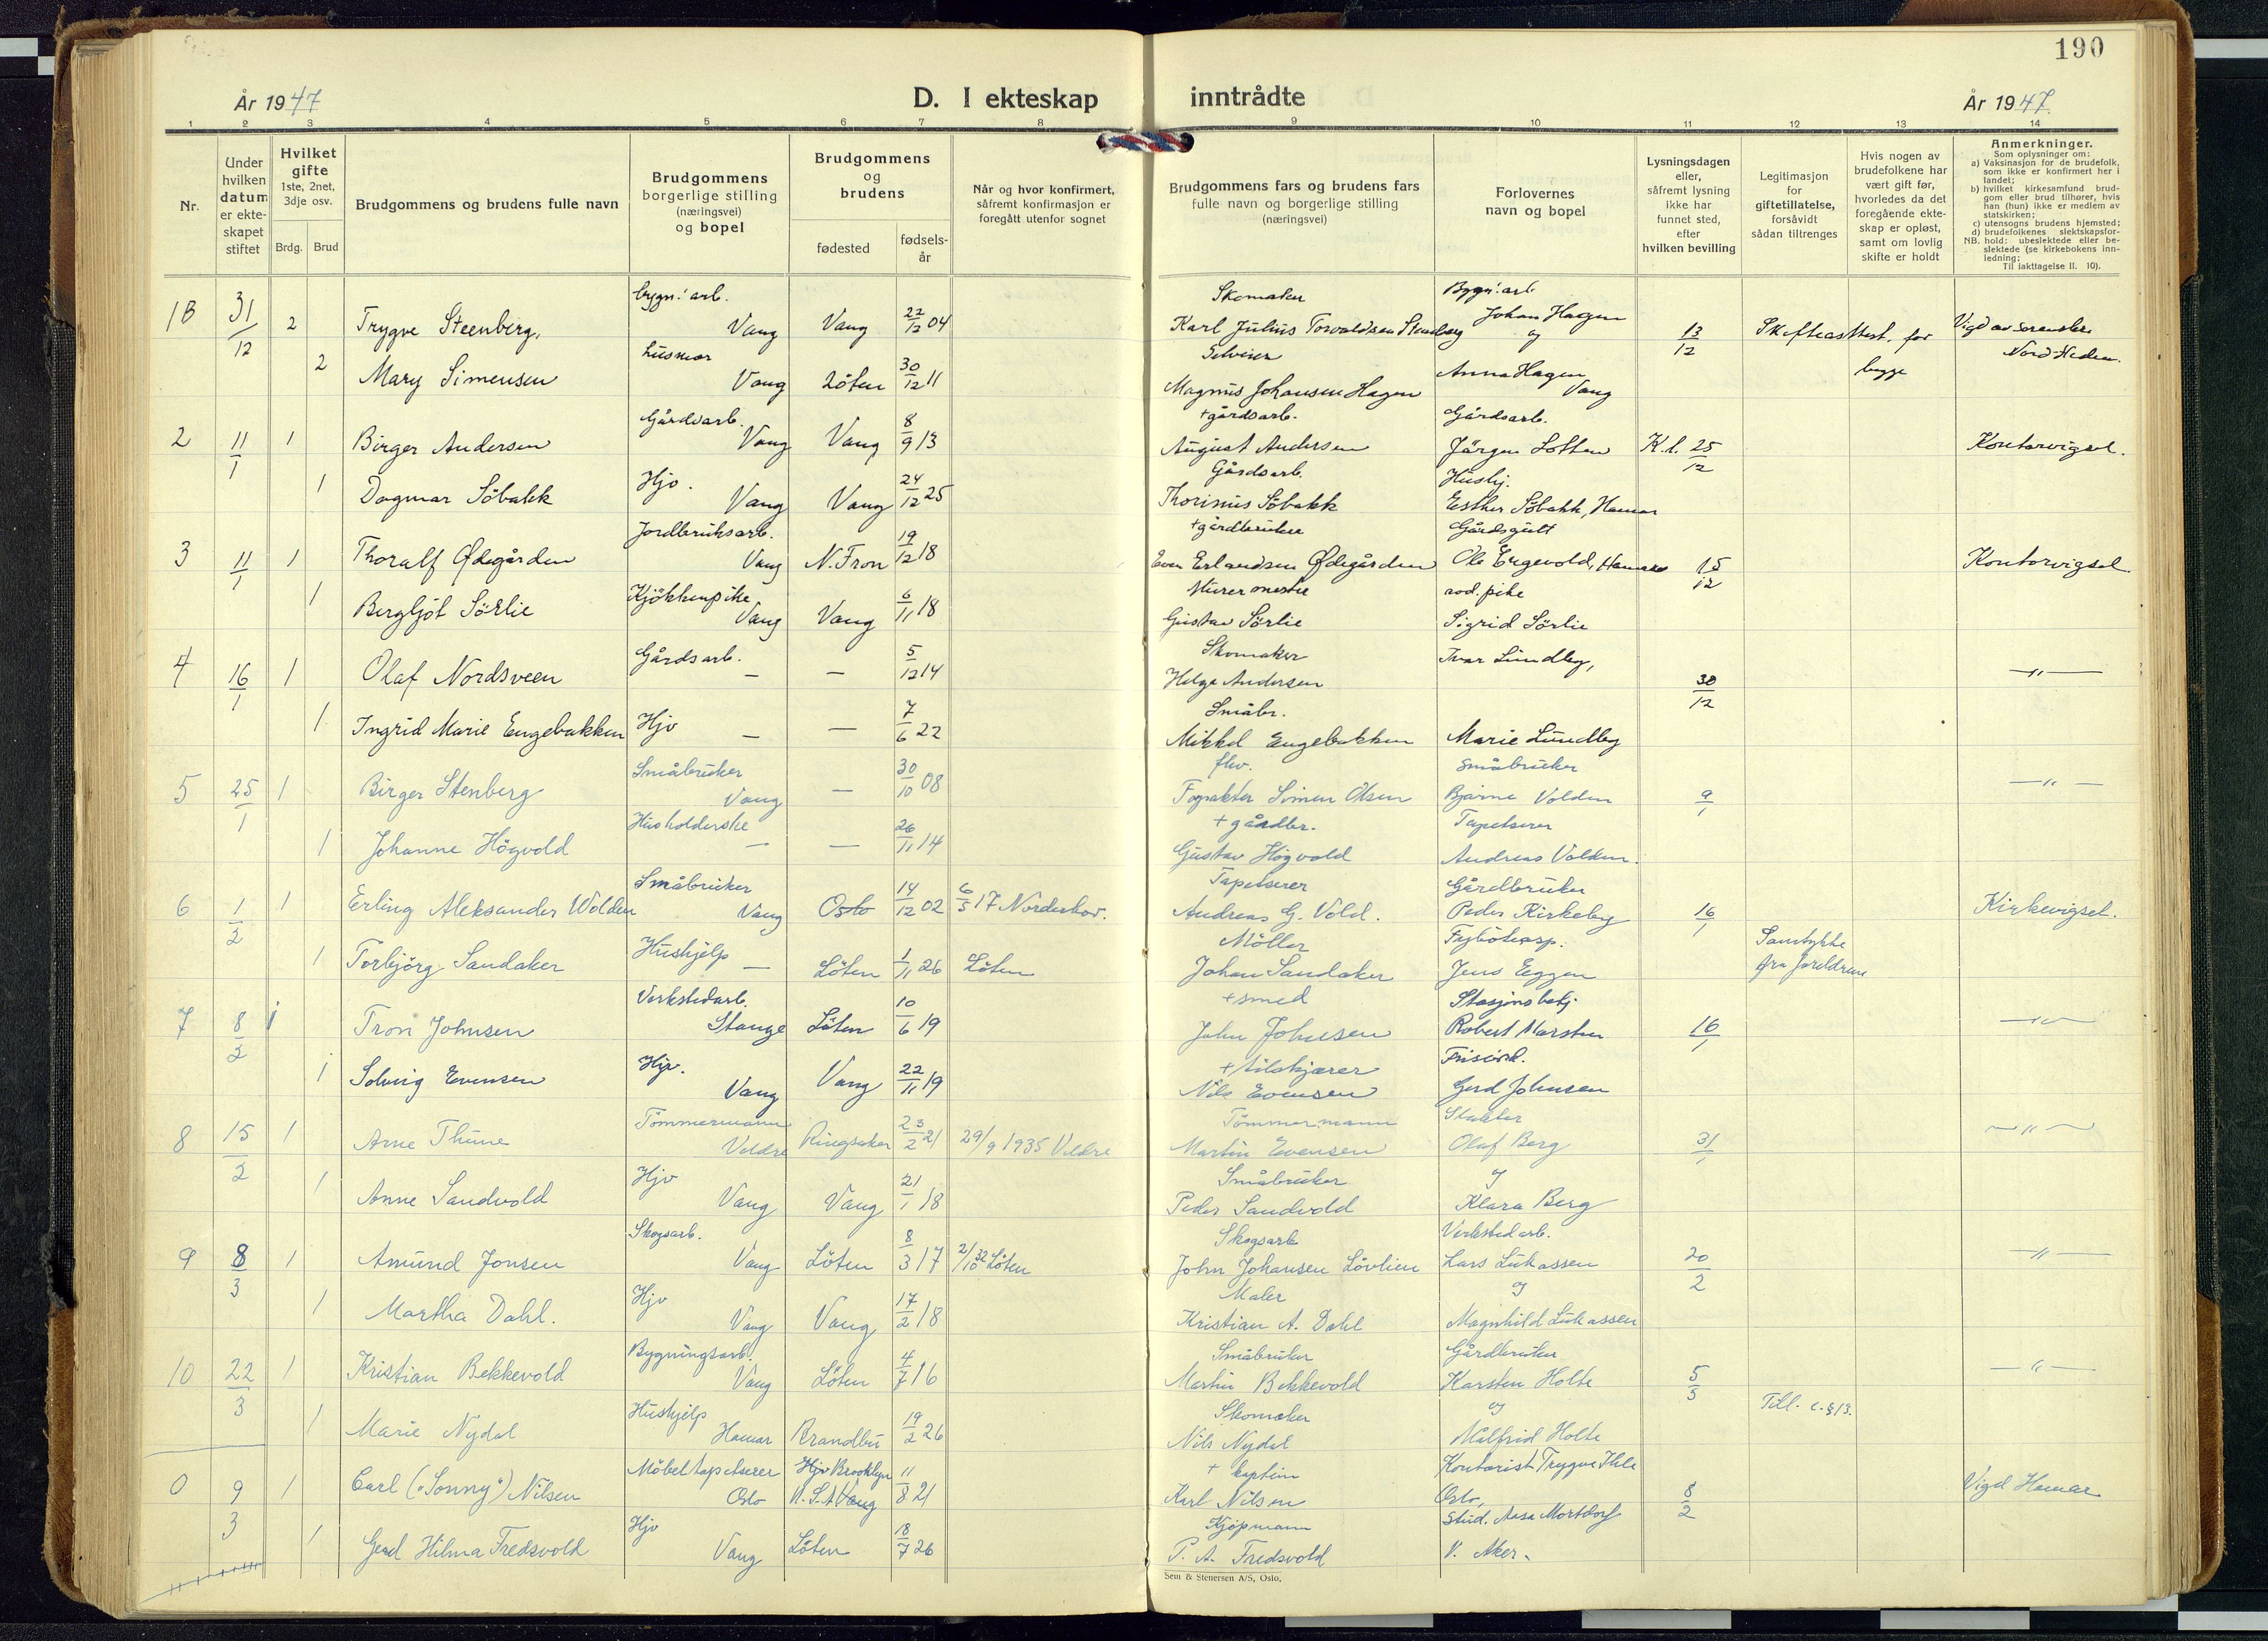 190
År 1947
D. I ekteskap inntrådte
År 1947.
1 2 3 4 5 6 7 8 9 10 11 12 13 14
Nr.
Under hvilken datum er ekteskapet stiftet
Hvilket gifte 1ste, 2net, 3dje osv.
Brdg. Brud
Brudgommens og brudens fulle navn
Brudgommens borgerlige stilling (næringsvei) og bopel
Brudgommens og brudens
fødested
fødselsår
Når og hvor konfirmert, såfremt konfirmasjon er foregått utenfor sognet
Brudgommens fars og brudens fars fulle navn og borgerlige stilling (næringsvei)
Forlovernes navn og bopel
Lysningsdagen eller, såfremt lysning ikke har funnet sted, efter hvilken bevilling
Legitimasjon for giftetillatelse, forsåvidt sådan tiltrenges
Hvis nogen av brudefolkene har vært gift før, hvorledes da det foregående ekteskap er opløst, samt om lovlig skifte er holdt
Anmerkninger.
Som oplysninger om:
a) Vaksinasjon for de brudefolk, som ikke er konfirmert her i landet;
b) hvilket kirkesamfund brudgom eller brud tilhører, hvis han (hun) ikke er medlem av statskirken;
c) utensogns brudens hjemsted;
d) brudefolkenes slektskapsforhold: ubeslektede eller beslektede (se kirkebokens innledning;
NB.
Til iakttagelse II. 10).
1B 31/12 2 Trygve Steenberg, bygn.arb. Vang Vang 22/12 04 Skomaker Karl Julius Torvaldsen Stenberg Bygn.arb. Johan Hagen og 13/12 Skifteattest. for begge Vigd av sorenskr. Nord-Hedm.
2 Mary Simensen husmor Vang Löten 30/12 11 Selveier Magnus Johansen Hagen Anna Hagen Vang
2 11/1 1 Birger Andersen Gårdsarb. Vang Vang 8/9 13 + gårdsarb. August Andersen Gårdsarb. Jörgen Lotten K.l. 25/12 Kontorvigsel.
1 Dagmar Söbakk Hjv. Vang Vang 24/12 25 Gårdsarb. Thorinus Söbakk Hushj. Esther Söbakk, Hamar
3 11/1 1 Thoralf Ødegården Jordbruksarb. Vang N. Fron 19/12 18 + gårdbruker Even Erlandsen Ødegården Gårdsgutt Ole Engevold, Hamar 15/12 Kontorvigsel.
1 Bergljot Sörlie Kjökkenpike Vang Vang 6/11 18 Murermester Gustav Sörlie Sigrid Sörlie
4 16/1 1 Olaf Nordsveen Gårdsarb. — — 5/12 14 Skomaker Helge Andersen Ivar Lundby, 30/12 —"—
1 Ingrid Marie Engebakken Hjv — — 7/6 22 Småbr. Mikkel Engebakken Marie Lundby
5 25/1 1 Birger Stenberg Småbruker Vang — 30/10 08 fhv. Simen Olsen Småbruker Bjarne Volden 9/1 —"—
1 Johanne Högvold Husholderske — — 26/11 14 + gårdbr. Gustav Högvold Tapetserer Andreas Volden.
6 1/2 1 Erling Aleksander Wolden Småbruker Vang Oslo 14/12 02 6/5 17 Norderhov. Tapetserer Andreas G. Vold. Gårdbruker Peder Kirkeby 16/1 Kirkevigsel.
1 Torbjörg Sandaker Hushjelp — Löten 1/11 26 Löten Möller Johan Sandaker Jens Eggen Samtykke fra foreldrene
7 8/2 1 Tron Johnsen Verkstedarb. Stange Löten 10/6 19 + smed John Johnsen Stasjonsbetj. Robert Marsten 16/1 —"—
1 Solveig Evensen Hjv. Vang Vang 22/11 19 Nils Evensen Gerd Johnsen
8 15/2 1 Arne Thune Tömmermann Veldre Ringsaker 23/2 21 29/9 1935 Veldre Tömmermann Martin Evensen Olaf Berg 31/1 —"—
1 Anne Sandvold Hjv Vang Vang 21/1 18 Småbruker Peder Sandvold og Klara Berg
9 8/3 1 Amund Jonsen Skogsarb. Vang Löten 8/3 17 2/10 32 Löten Skogsarb John Johansen Lövlien Verkstedarb. Lars Lukassen 20/2 —"—
1 Martha Dahl. Hjv Vang Vang 17/2 18 Maler Kristian A. Dahl og Magnhild Lukassen
10 22/3 1 Kristian Bekkevold Bygningsarb. Vang Löten 4/7 16 Småbruker Martin Bekkevold Gårdbruker Karsten Holte 5/3 —"—
1 Marie Nydal Hushjelp Hamar Brandbu 19/2 26 Skomaker Nils Nydal og Målfrid Holte Till. l. §13.
0 9/3 1 Carl ("Sonny") Nilsen Möbeltapetserer Oslo Brooklyn U.S.A. 11/8 21 + kaptein Karl Nilsen Kontorist Trygve Ihle Oslo, 8/2 Vigd Hamar
1 Gerd Hilma Fredsvold Hjv Vang Löten 18/7 26 Kjöpmann P. A. Fredsvold Stud. Aasa Mortdorf V. Aker.
Sem & Stenersen A/S, Oslo.